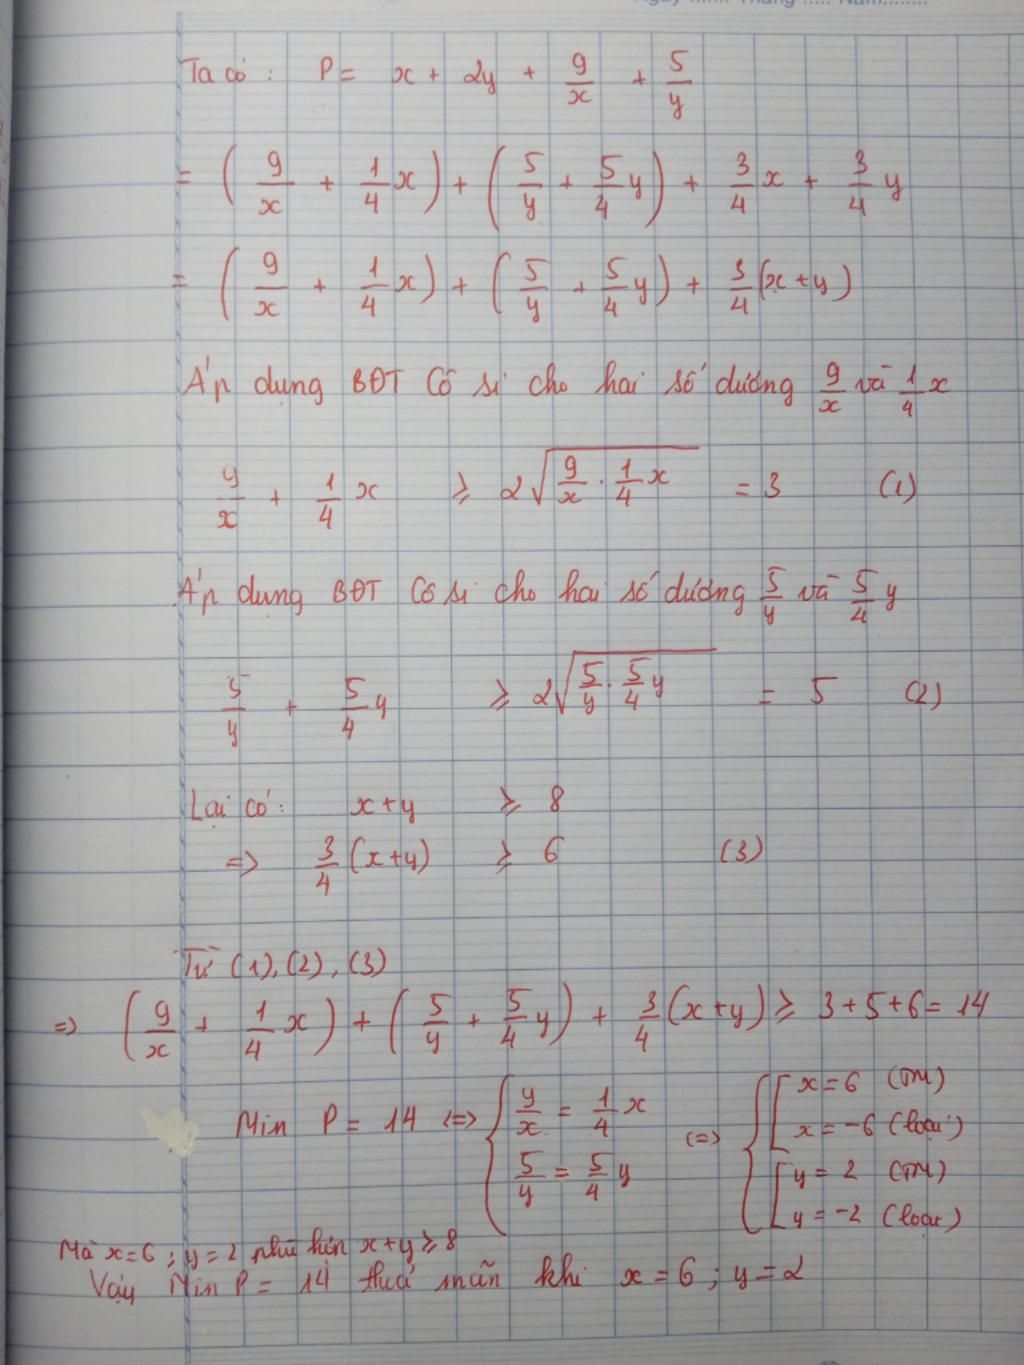 Ngày ....... Tháng ..... Năm........
Ta có : P = x + 2y + 9/x + 5/y
= (9/x + 1/4 x) + (5/y + 5/4 y) + 3/4 x + 3/4 y
= (9/x + 1/4 x) + (5/y + 5/4 y) + 3/4 (x + y)
Áp dụng BĐT Cô si cho hai số dương 9/x và 1/4 x
9/x + 1/4 x ≥ 2√(9/x . 1/4 x) = 3 (1)
Áp dụng BĐT Cô si cho hai số dương 5/y và 5/4 y
5/y + 5/4 y ≥ 2√(5/y . 5/4 y) = 5 (2)
Lại có : x + y ≥ 8
=> 3/4 (x + y) ≥ 6 (3)
Từ (1), (2), (3)
=> (9/x + 1/4 x) + (5/y + 5/4 y) + 3/4 (x + y) ≥ 3 + 5 + 6 = 14
Min P = 14 <=> { 9/x = 1/4 x ; 5/y = 5/4 y <=> { [ x = 6 (TM) ; x = -6 (loại) ; [ y = 2 (TM) ; y = -2 (loại)
Mà x = 6 ; y = 2 phù hợp x + y ≥ 8
Vậy Min P = 14 thoả mãn khi x = 6 ; y = 2